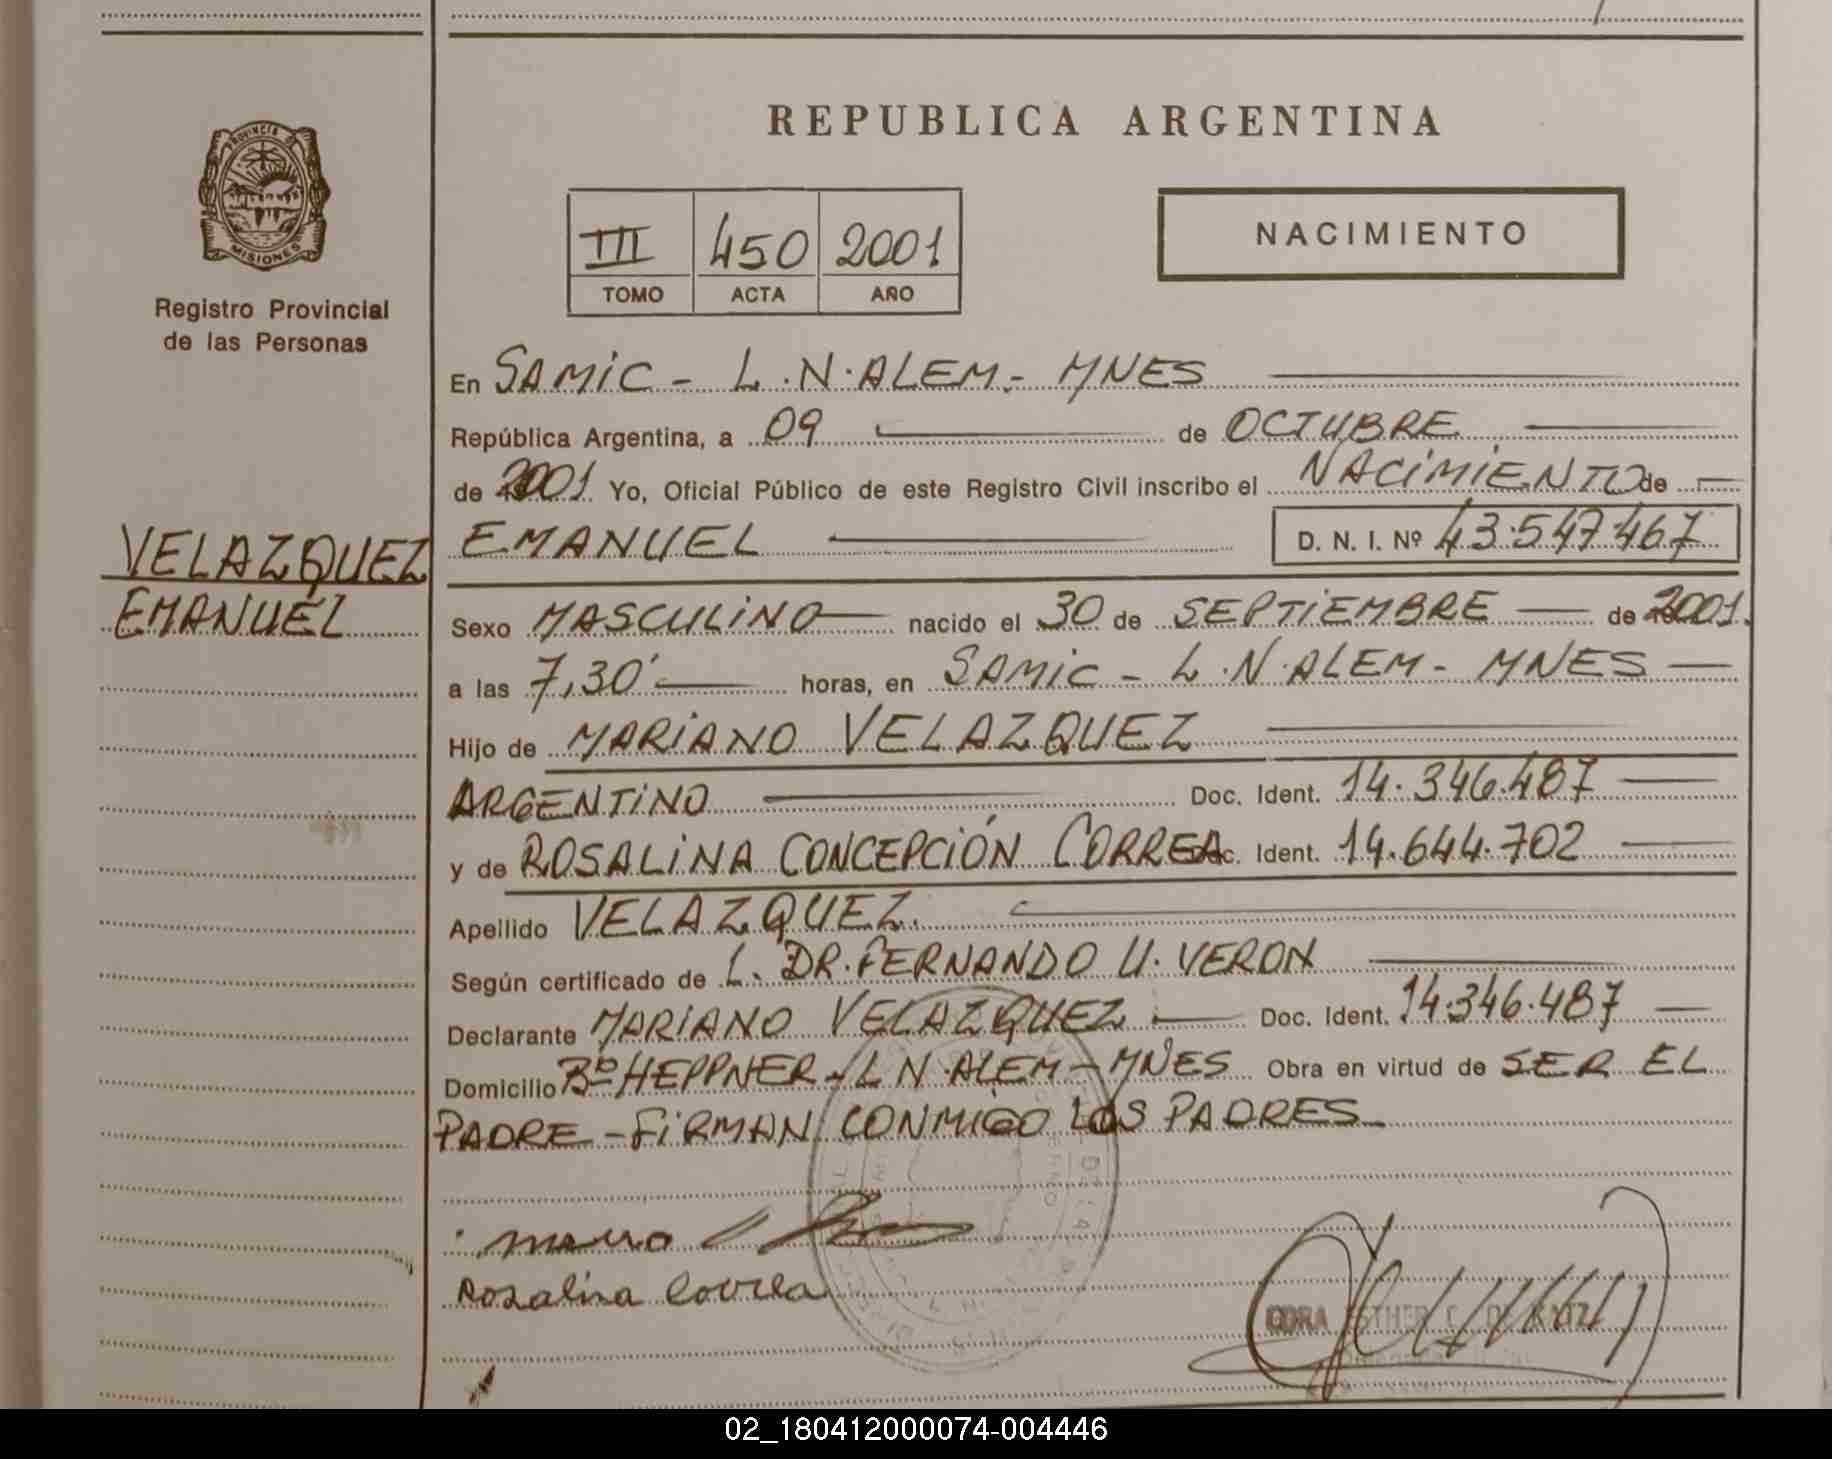 REPUBLICA ARGENTINA
PROVINCIA D
MISIONES
Registro Provincial
de las Personas
III 450 2001
TOMO ACTA AÑO
NACIMIENTO
En SAMIC - L.N.ALEM - MNES
República Argentina, a 09 de OCTUBRE
de 2001 Yo, Oficial Público de este Registro Civil inscribo el NACIMIENTO de
EMANUEL D. N. I. Nº 43.547.467
VELAZQUEZ
EMANUEL
Sexo MASCULINO nacido el 30 de SEPTIEMBRE de 2001.
a las 7,30' horas, en SAMIC - L.N.ALEM - MNES
Hijo de MARIANO VELAZQUEZ
ARGENTINO Doc. Ident. 14.346.487
y de ROSALINA CONCEPCIÓN CORREA Doc. Ident. 14.644.702
Apellido VELAZQUEZ.
Según certificado de L. DR. FERNANDO U. VERON
Declarante MARIANO VELAZQUEZ Doc. Ident. 14.346.487
Domicilio Bº HEPPNER - L N.ALEM - MNES Obra en virtud de SER EL
PADRE - FIRMAN CONMIGO LOS PADRES
Rosalina Correa
CORA ESTHER C. DE KATZ
02_180412000074-004446